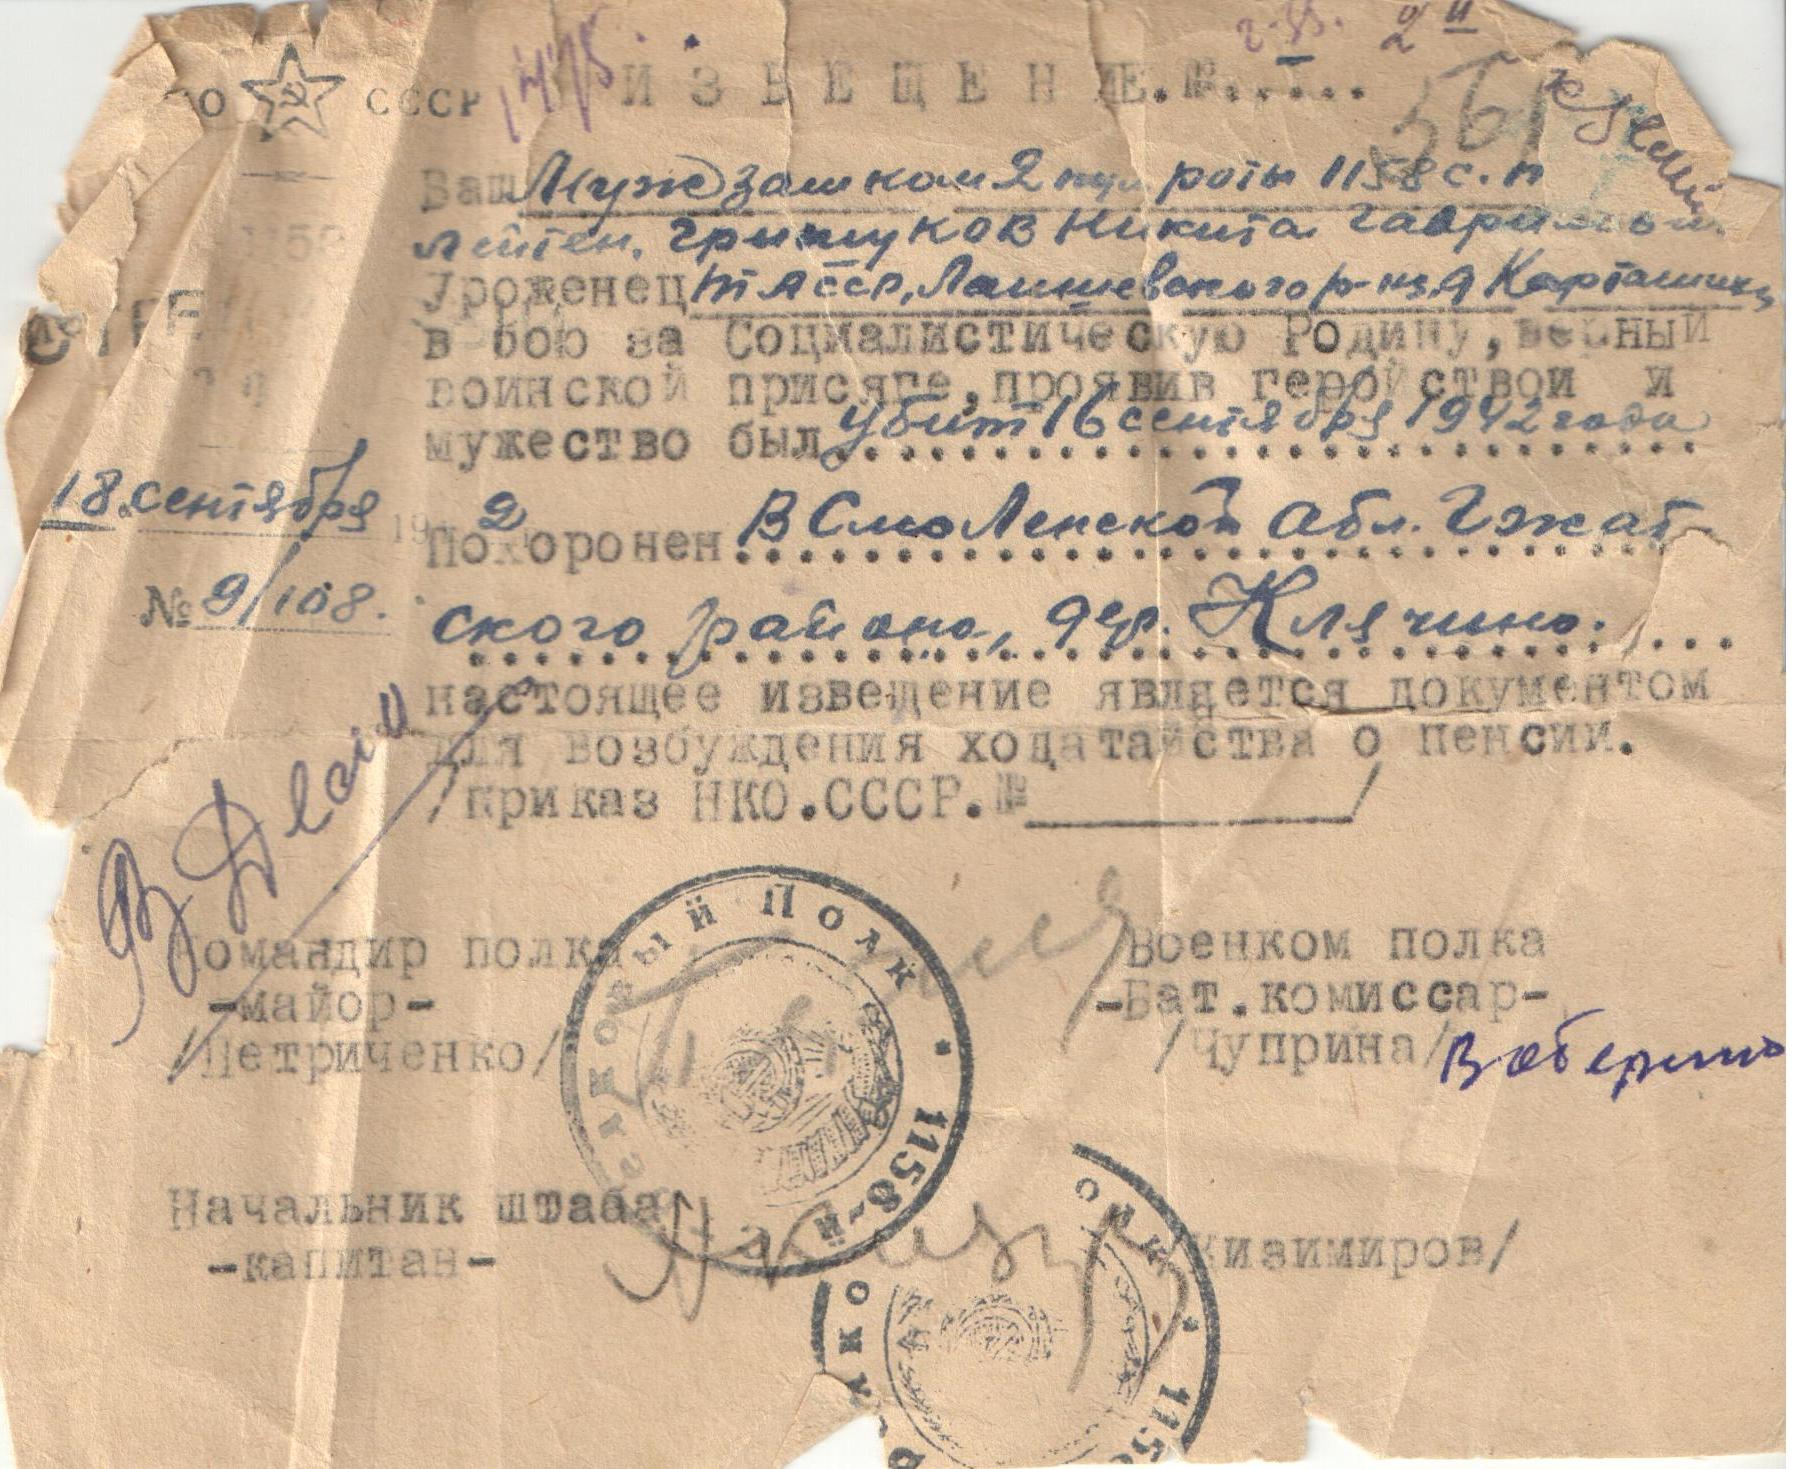 СССР
ИЗВЕЩЕНИЕ. №.....
Ваш Муж зам ком 2 пул роты 1158 с.п
лейтен. Гришуков Никита
Уроженец ТАССР, Лаишевского р-на д
в бою за Социалистическую Родину, верный
воинской присяге, проявив геройствои и
мужество был убит 16 сентября 1942 года
18 сентября 19 2
Похоронен В Смоленской Обл. Гжат
№ 9/108.
ского района, дер. Клячино.
настоящее извещение является документом
для возбуждения ходатайства о пенсии.
/приказ НКО.СССР.№ /
Командир полка
-майор-
/Петриченко/
Военком полка
-Бат.комиссар-
/Чуприна/
Начальник штаба
-капитан-
Кизимиров/
Стрелковый Полк * 1158-й
НКО
1158